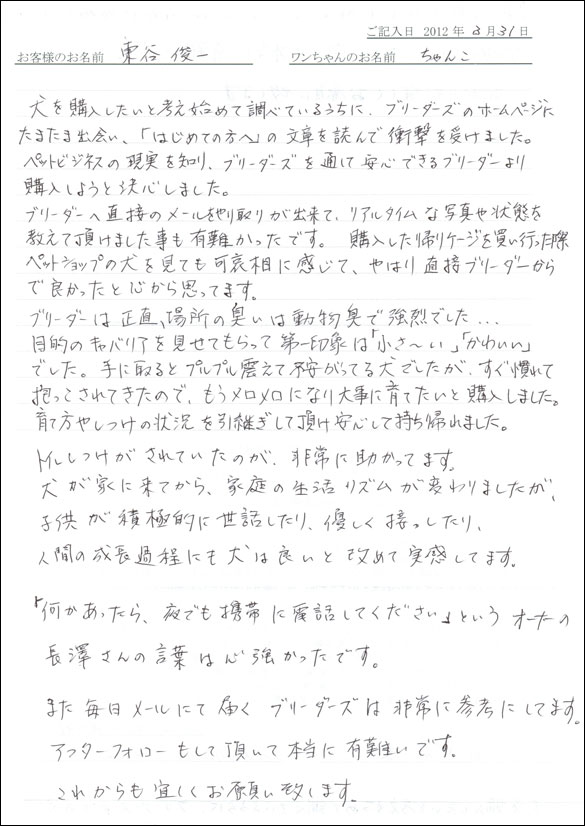 ご記入日 2012年 3月31日
お客様のお名前 東谷 俊一 ワンちゃんのお名前 ちゃんこ
犬を購入したいと考え始めて調べているうちに、ブリーダーズのホームページに
たまたま出会い、「はじめての方へ」の文章を読んで衝撃を受けました。
ペットビジネスの現実を知り、ブリーダーズを通して安心できるブリーダーより
購入しようと決心しました。
ブリーダーへ直接のメールをやり取りが出来て、リアルタイムな写真や状態を
教えて頂けました事も有難かったです。 購入した帰りケージを買い行った際
ペットショップの犬を見ても可哀相に感じて、やはり直接ブリーダーから
で良かったと心から思ってます。
ブリーダーは正直、場所の臭いは動物臭で強烈でした...
目的のキャバリアを見せてもらって第一印象は「小さ～い」「かわいい」
でした。手に取るとプルプル震えて不安がってる犬でしたが、すぐ慣れて
抱っこされてきたので、もうメロメロになり大事に育てたいと購入しました。
育て方やしつけの状況を引継ぎして頂け安心して持ち帰れました。
トイレしつけがされていたのが、非常に助かってます。
犬が家に来てから、家庭の生活リズムが変わりましたが、
子供が積極的に世話したり、優しく接っしたり、
人間の成長過程にも犬は良いと改めて実感してます。
「何かあったら、夜でも携帯に電話してください」というオーナーの
長澤さんの言葉は心強かったです。
また毎日メールにて届くブリーダーズは非常に参考にしてます。
アフターフォローもして頂いて本当に有難いです。
これからも宜しくお願い致します。